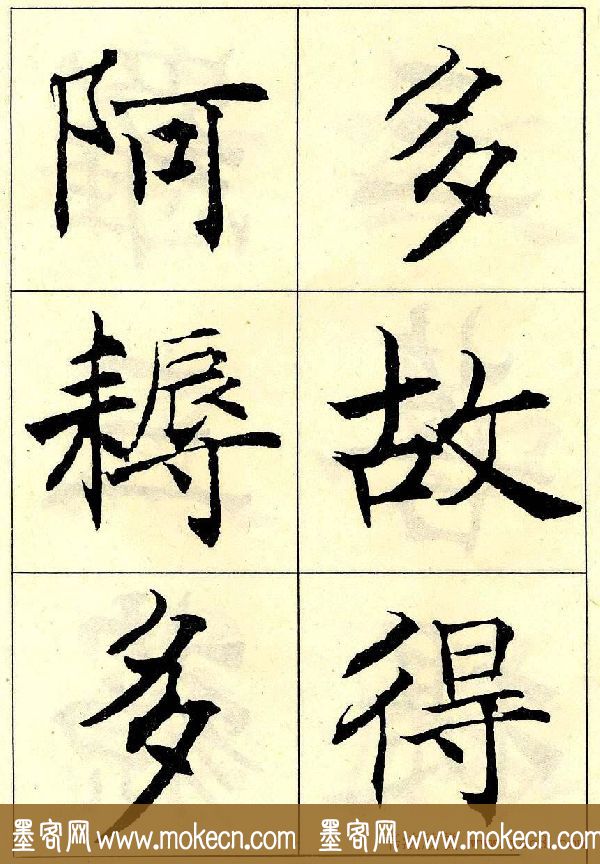 多故得
阿耨多
墨客网 www.mokecn.com 墨客网 www.mokecn.com